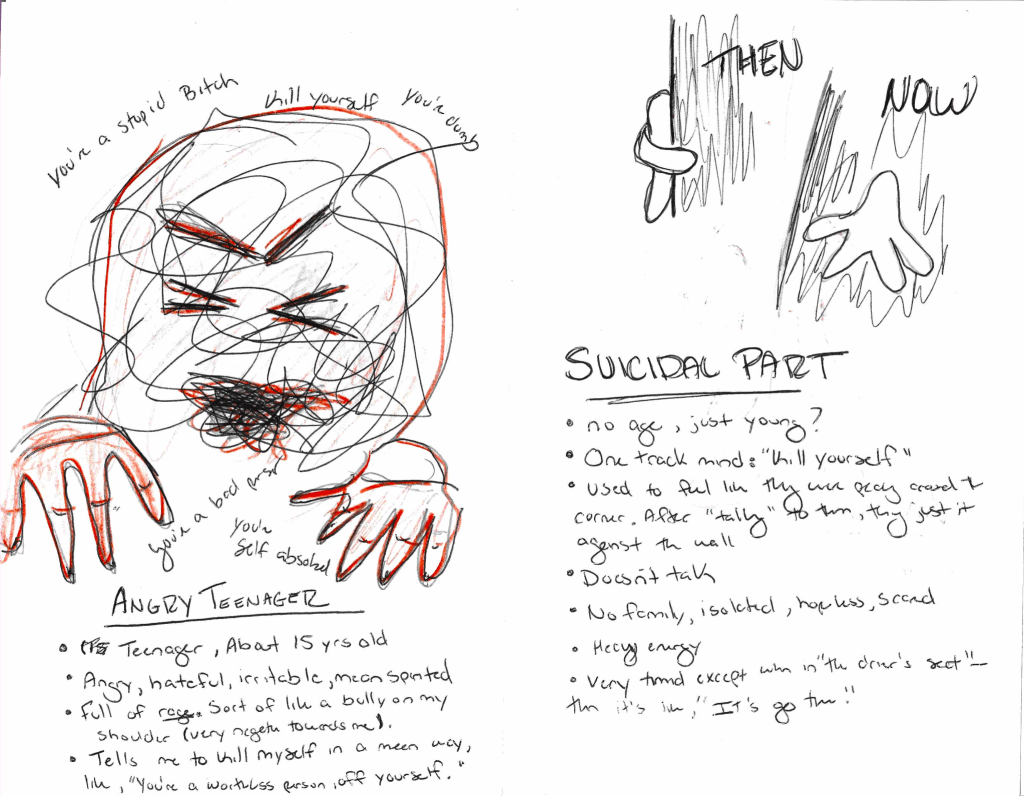 You're a stupid Bitch
Kill yourself
You're dumb
You're a bad person
You're
self absorbed
ANGRY TEENAGER
• Teenager, About 15 yrs old
• Angry, hateful, irritable, mean spirited
• Full of rage. Sort of like a bully on my
shoulder (very negative towards me).
• Tells me to kill myself in a mean way,
like, "You're a worthless person, off yourself."
THEN
NOW
SUICIDAL PART
• no age, just young?
• One track mind: "kill yourself"
• Used to feel like they were peeking around the
corner. After "talking" to them, they just sit
against the wall
• Doesn't talk
• No family, isolated, hopeless, scared
• Heavy energy
• Very timid except when in "the driver's seat" –
then it's like, "It's go time!"